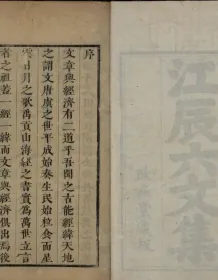 序
文章與經濟有二道乎吾聞之古能經緯天地
之謂文唐虞之世平成始奏生民始粒食而星
雲日月之歌禹貢山海經之書實為萬世立言
者之祖蓋一經一緯而文章與經濟俱出焉後
江辰六文集